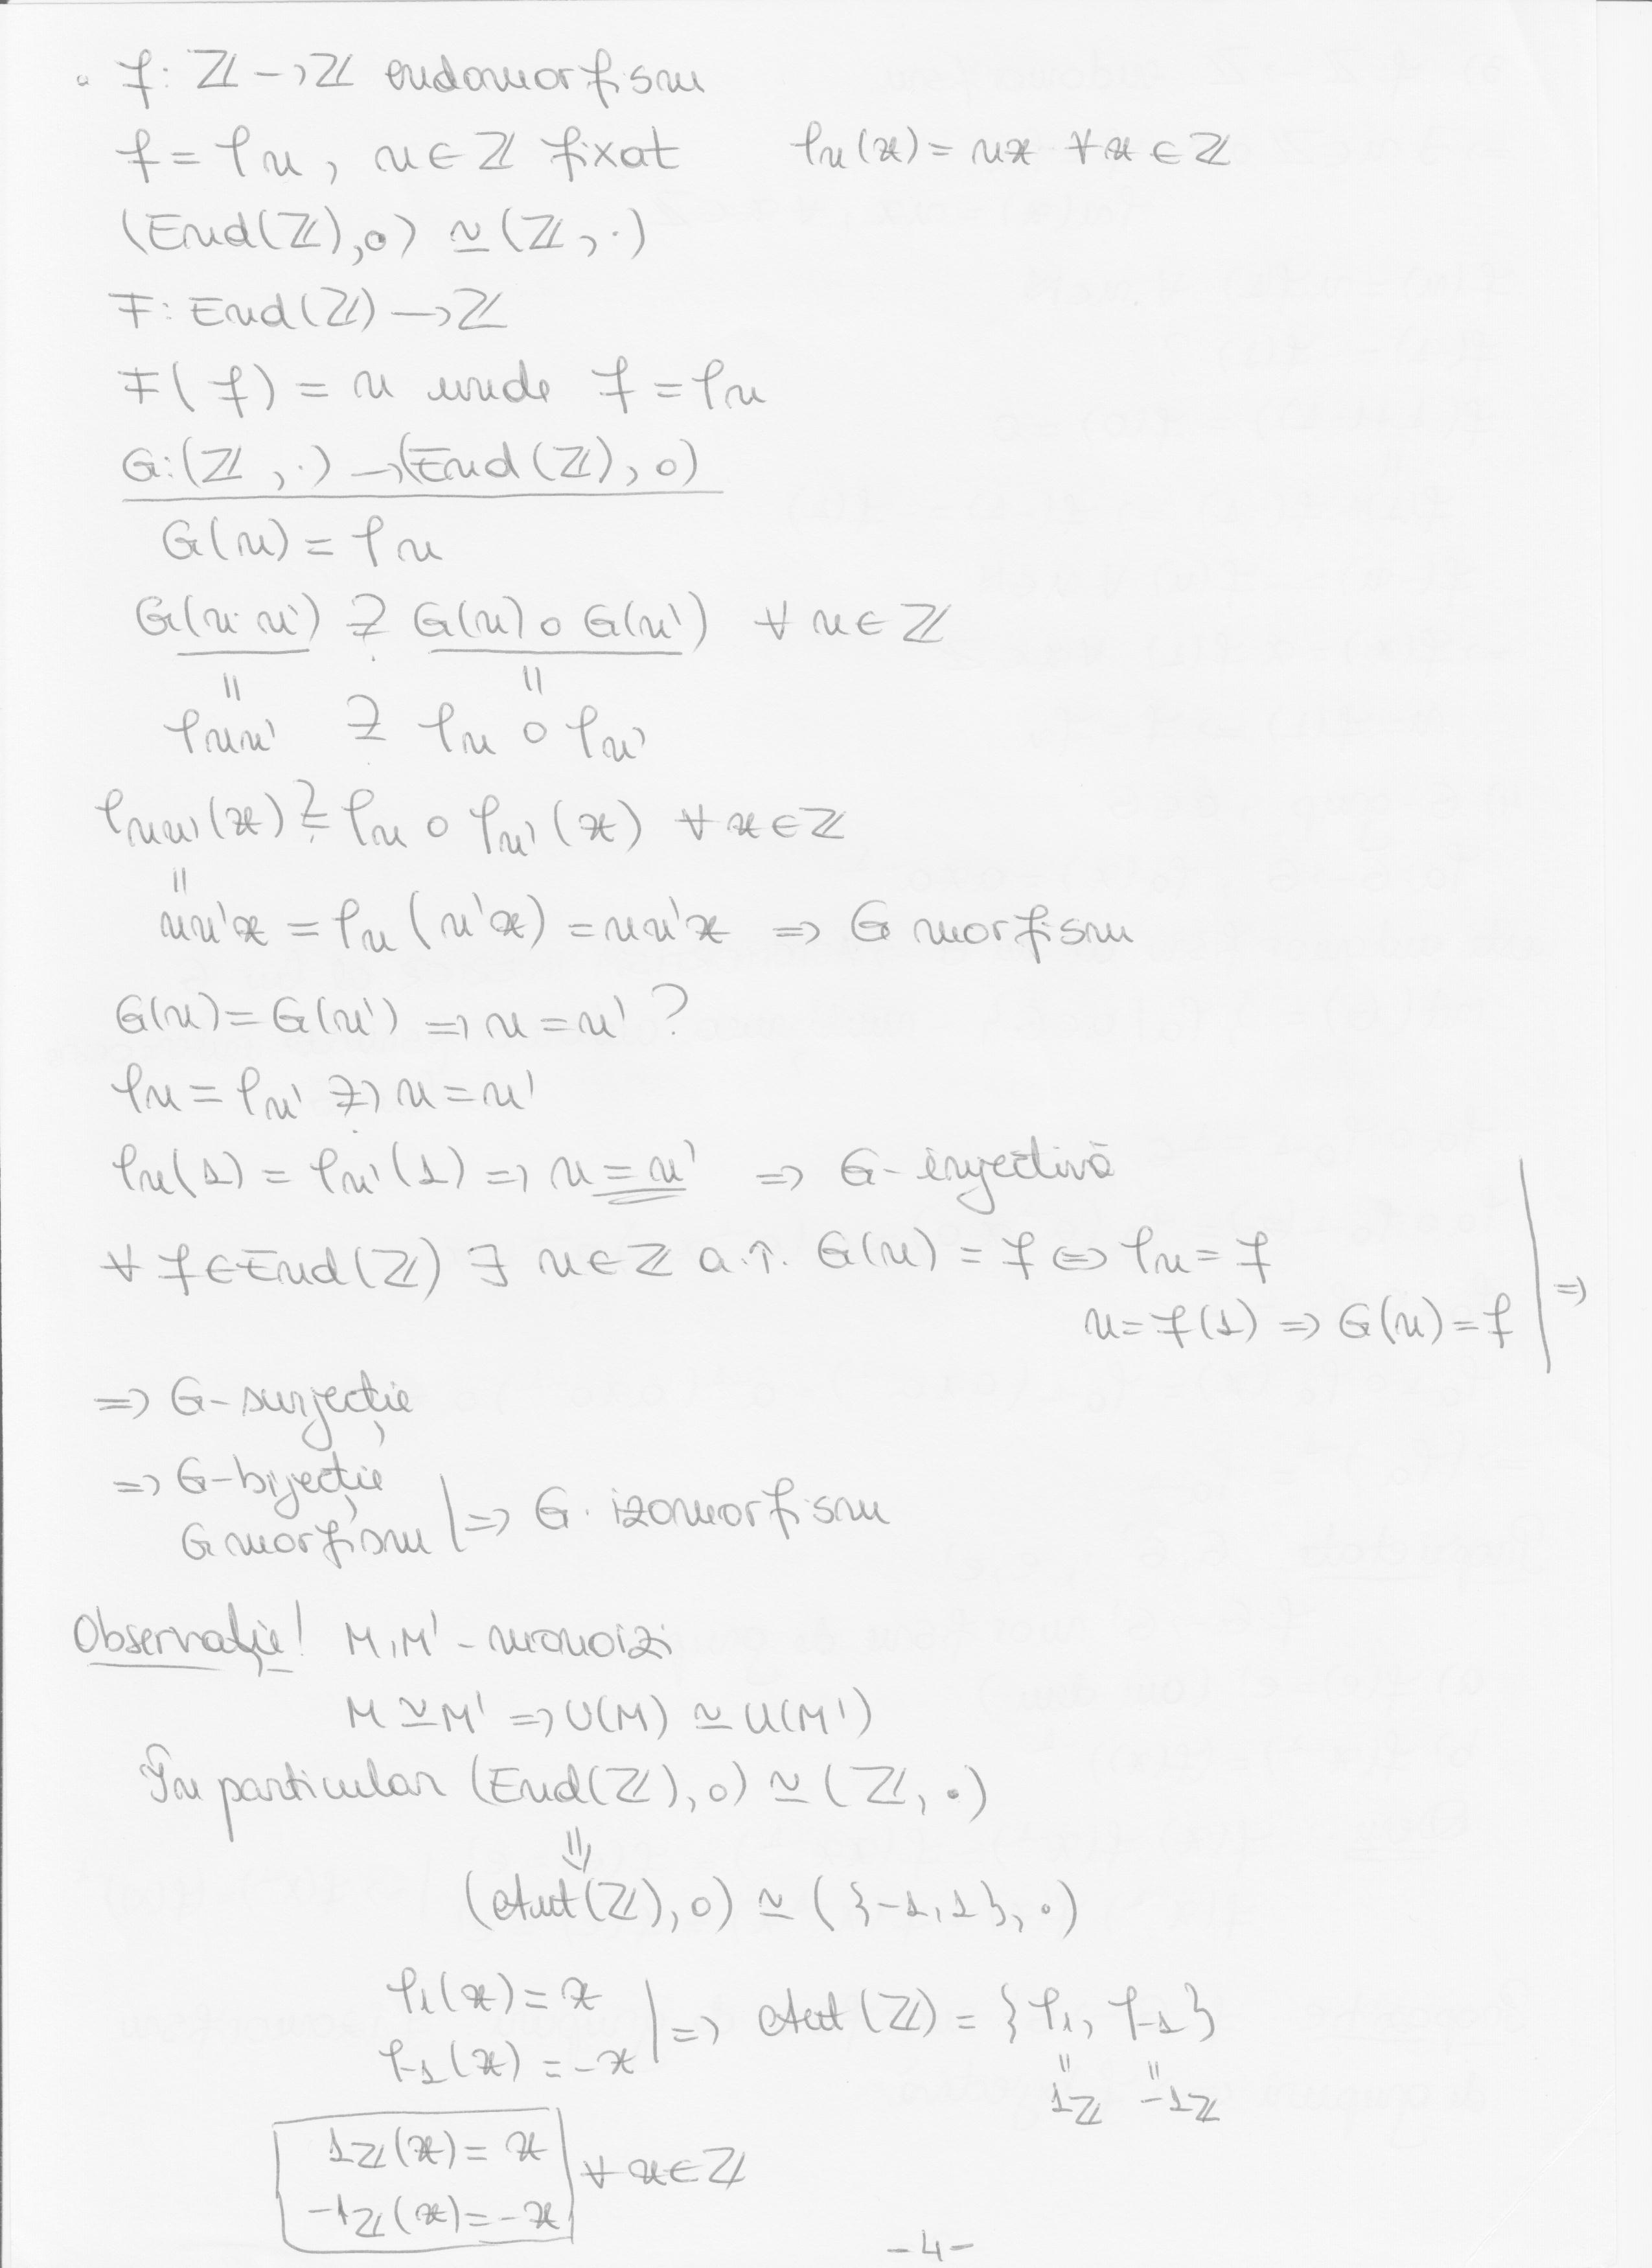 f: ℤ → ℤ endomorfism
f = φn, n ∈ ℤ fixat φn(x) = nx ∀ x ∈ ℤ
(End(ℤ), ∘) ≃ (ℤ, ·)
F: End(ℤ) → ℤ
F(f) = n unde f = φn
G: (ℤ, ·) → (End(ℤ), ∘)
G(n) = φn
G(n·n') =? G(n) ∘ G(n') ∀ n ∈ ℤ
= =
φnn' =? φn ∘ φn'
φnn'(x) =? φn ∘ φn'(x) ∀ x ∈ ℤ
=
nn'x = φn(n'x) = nn'x ⇒ G morfism
G(n) = G(n') ⇒ n = n' ?
φn = φn' ?⇒ n = n'
φn(1) = φn'(1) ⇒ n = n' ⇒ G-injectivă
∀ f ∈ End(ℤ) ∃ n ∈ ℤ a.î. G(n) = f ⇔ φn = f
n = f(1) ⇒ G(n) = f | ⇒
⇒ G-surjecție
⇒ G-bijecție
G morfism | ⇒ G. izomorfism
Observație! M, M' - monoizi
M ≃ M' ⇒ U(M) ≃ U(M')
În particular (End(ℤ), ∘) ≃ (ℤ, ·)
⇓
(Aut(ℤ), ∘) ≃ ({-1, 1}, ·)
φ1(x) = x
φ-1(x) = -x | ⇒ Aut(ℤ) = {φ1, φ-1}
= =
1ℤ -1ℤ
1ℤ(x) = x
-1ℤ(x) = -x | ∀ x ∈ ℤ
-4-